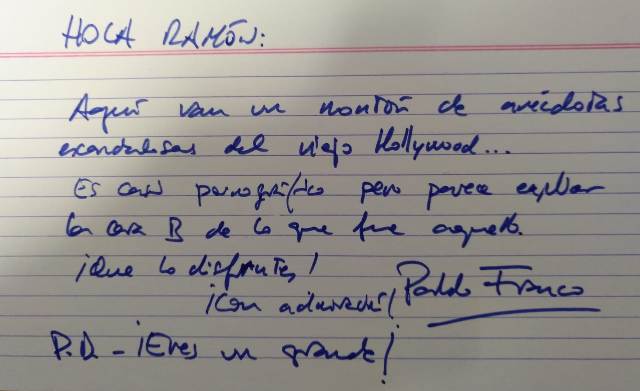 HOLA RAMÓN:
Aquí van un montón de anécdotas
escandalosas del viejo Hollywood...
Es casi pornográfico pero parece explicar
la cara B de lo que fue aquello.
¡Que lo disfrutes!
¡Con admiración! Pablo Franco
P.D. - ¡Eres un grande!